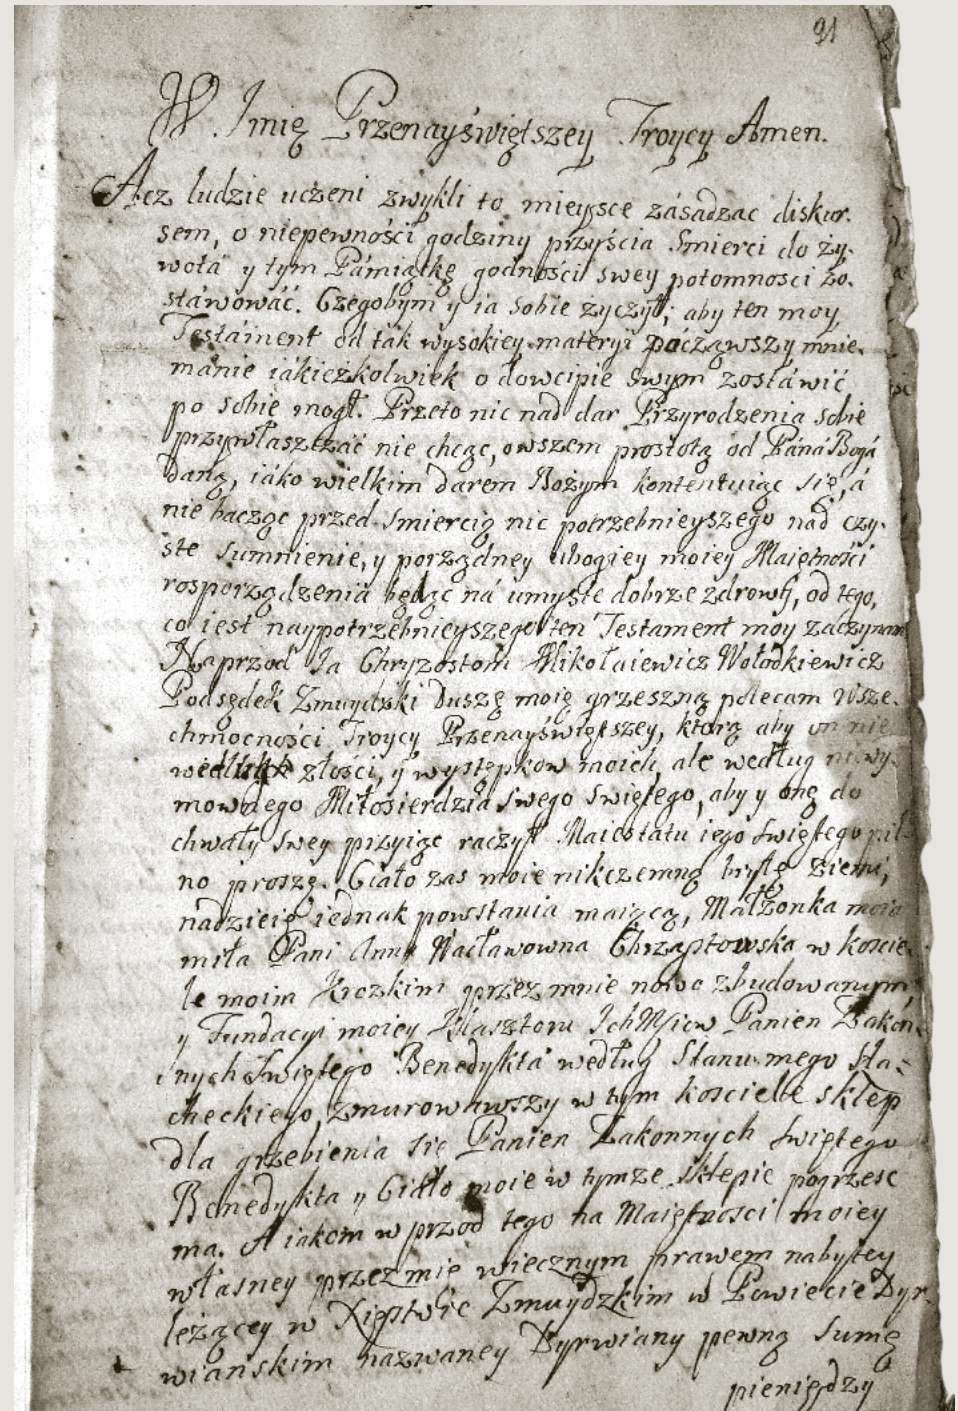 91
W Imię Przenayświętszey Troycy Amen.
Acz ludzie uczeni zwykli to mieysce zásadzac diskur-
sem, o niepewności godziny przyścia Smierci do ży-
wota y tym Pámiątkę godności swey potomnosci zo-
stáwowáć. Czegobym y ia sobie życzył; aby ten moy
Testáment od ták wysokiey materyi począwszy mnie-
mánie iákieżkolwiek o dowcipie swym zostáwić
po sobie mogł. Przeto nic nad dar Przyrodzenia sobie
przywłaszczáć nie chcąc, owszem prostotą od Pána Bogá
daną, iáko wielkim darem Bożym kontentuiąc się, á
nie bacząc przed smiercią nic potrzebnieyszego nad czy-
ste sumnienie, y porządney ubogiey moiey Maiętności
rosporządzenia będąc ná umyśle dobrze zdrowy, od tego,
co iest naypotrzebnieyszego ten Testament moy zaczynam
Naprzod Ja Chryzostom Mikołaiewicz Wołodkiewicz
Podsędek Zmuydzki Duszę moię grzeszną polecam Wsze-
chmocności Troycy Przenayświętszey, ktorą aby on nie
według złości, y występkow moich, ale według niewy-
mownego Miłosierdzia swego swiętego, aby y onę do
chwały swey przyiąc raczył Maiestatu iego swiętego pil-
no proszę. Ciało zas moie nikczemną bryłę ziemi,
nadzieię iednak powstania maiącą, Małżonka moia
miła Pani Anna Wacławowna Chrząstowska w koscie-
le moim Krozkim przez mnie nowo zbudowanym
y Fundacyi moiey Klasztoru IchMsciow Panien Zakon-
nych Swiętego Benedykta według Stanu mego Sla-
checkiego, zmurowawszy w tym kosciele sklep
dla grzebienia się Panien Zakonnych Swiętego
Benedykta y Ciało moie w tymze sklepie pogrzesc
ma. A iakom w przod tego na Maiętnosci moiey
własney przez mię wiecznym prawem nabytey
leżącey w Xięstwie Zmuydzkim w Powiecie Dyr-
wianskim nazwaney Dyrwiany pewną sumę
pieniędzy